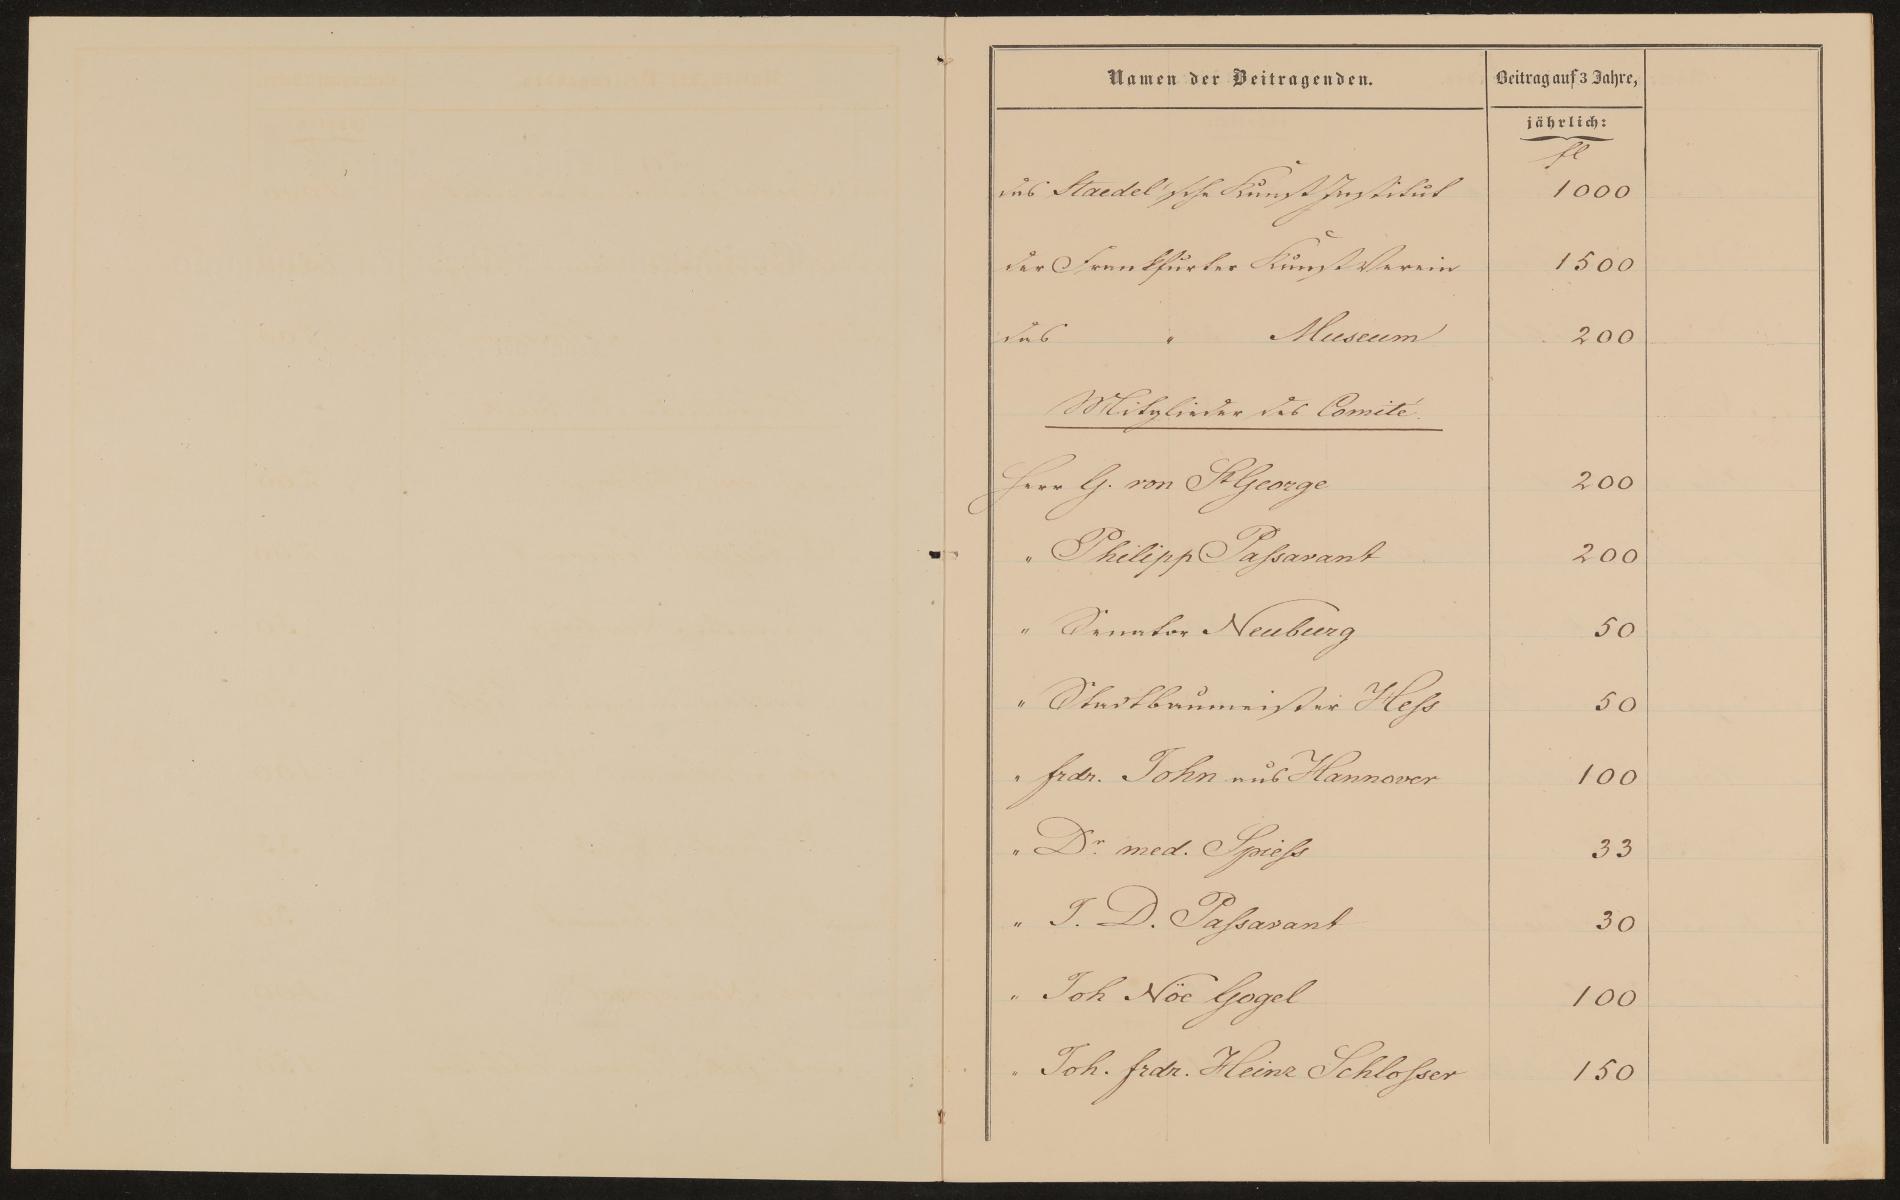 Namen der Beitragenden.
Beitrag auf 3 Jahre,
jährlich:
fl
das Staedel'sche Kunst Institut 1000
der Frankfurter Kunst Verein 1500
das " Museum 200
Mitglieder des Comité.
Herr G. von St George 200
" Philipp Paſsavant 200
" Senator Neuburg 50
" Stadtbaumeister Heſs 50
" frdr. John aus Hannover 100
" Dr. med. Spieſs 33
" J. D. Paſsavant 30
" Joh Nöe Gogel 100
" Joh. frdr. Heinr Schloſser 150